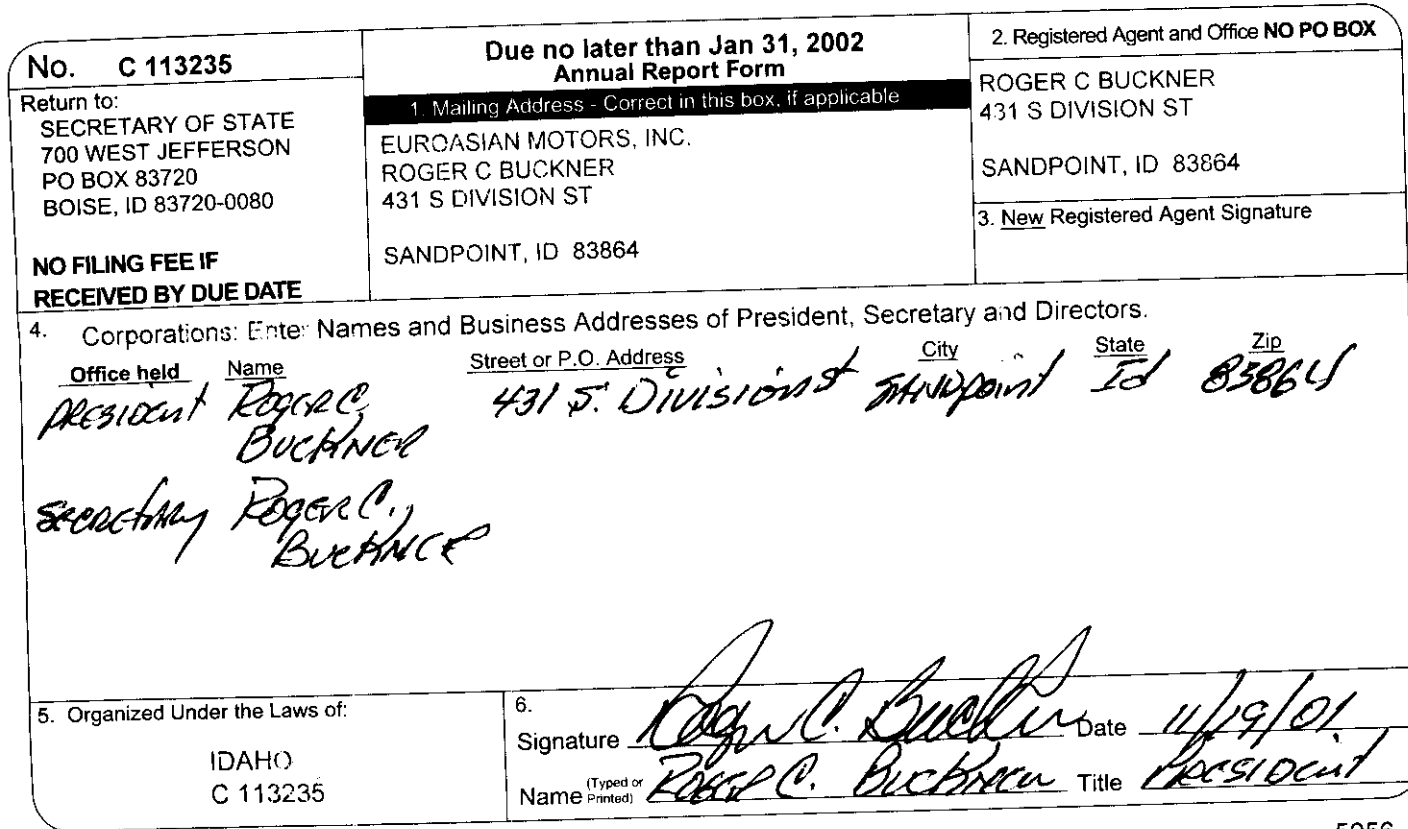 No. C 113235
Return to:
SECRETARY OF STATE
700 WEST JEFFERSON
PO BOX 83720
BOISE, ID 83720-0080
NO FILING FEE IF
RECEIVED BY DUE DATE
Due no later than Jan 31, 2002
Annual Report Form
1. Mailing Address - Correct in this box, if applicable
EUROASIAN MOTORS, INC.
ROGER C BUCKNER
431 S DIVISION ST
SANDPOINT, ID 83864
2. Registered Agent and Office NO PO BOX
ROGER C BUCKNER
431 S DIVISION ST
SANDPOINT, ID 83864
3. New Registered Agent Signature
4. Corporations: Enter Names and Business Addresses of President, Secretary and Directors.
Office held Name Street or P.O. Address City State Zip
PRESIDENT ROGER C. 431 S. DIVISION St SANDpoint Id 83864
BUCKNER
SECRETARY ROGER C.,
BUCKNER
5. Organized Under the Laws of:
IDAHO
C 113235
6.
Signature Roger C. Buckner Date 11/19/01
Name (Typed or Printed) ROGER C. BUCKNER Title PRESIDENT